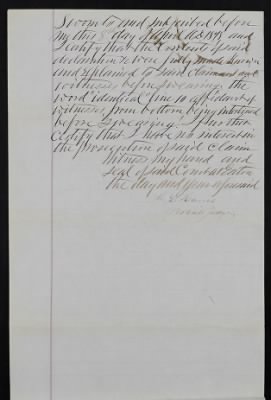 Sworn to and subscribed before
me this 8th day of April A.D. 1898 and
I certify that the contents of said
declaration &c were fully made known
and explained to said claimant and
witnesses before swearing the
word "identical" line in affidavit of
witnesses from bottom being interlined
before swearing. I further
certify that I have no interest in
the prosecution of said claim
Witness my hand and
seal of said
the day and year aforesaid